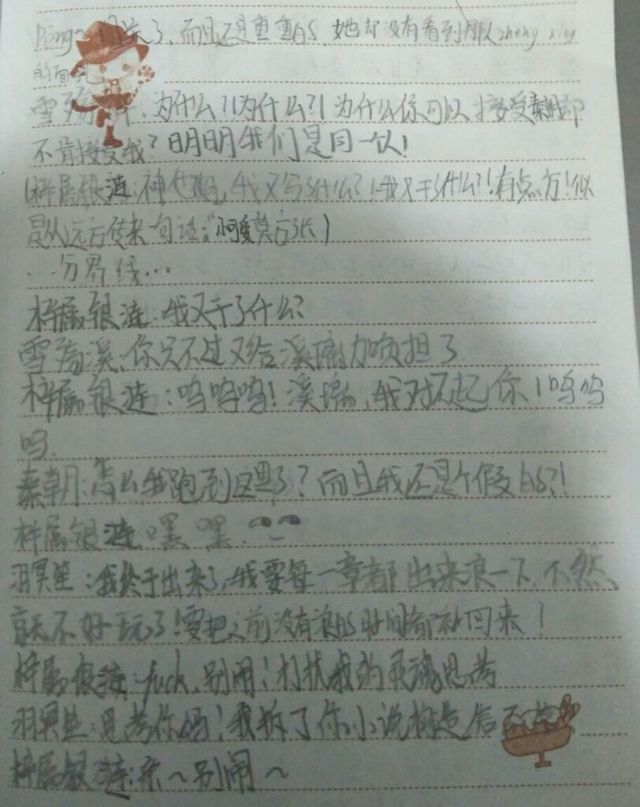 Pēng~门关了,而且还是重重的,她却没有看到那人zhong xiu
的面孔
雪:为什么?!为什么?!为什么你可以接受秦朝却
不肯接受我?明明我们是同一人!
(梓属银涟:神也啊,我又写了什么?!我又干了什么?!有点方!似
是从远方传来一句话:"阿爱莫方张)
…分界线…
梓属银涟:我又干了什么?
雪殇溪:你只不过又给溪璃加负担了
梓属银涟:呜呜呜!溪璃,我对不起你!呜呜
呜
秦朝:怎么我跑到这里了?而且我还是个假的?!
梓属银涟:嘿嘿.
羽冥笙:我终于出来了,我要每一章都出来浪一下,不然
就不好玩了!要把之前没有浪的时间都补回来!
梓属银涟:fuck,别闹!打扰我的灵魂思考
羽冥笙:思考你妈!我拆了你小说构造信不信
梓属银涟:亲~别闹~